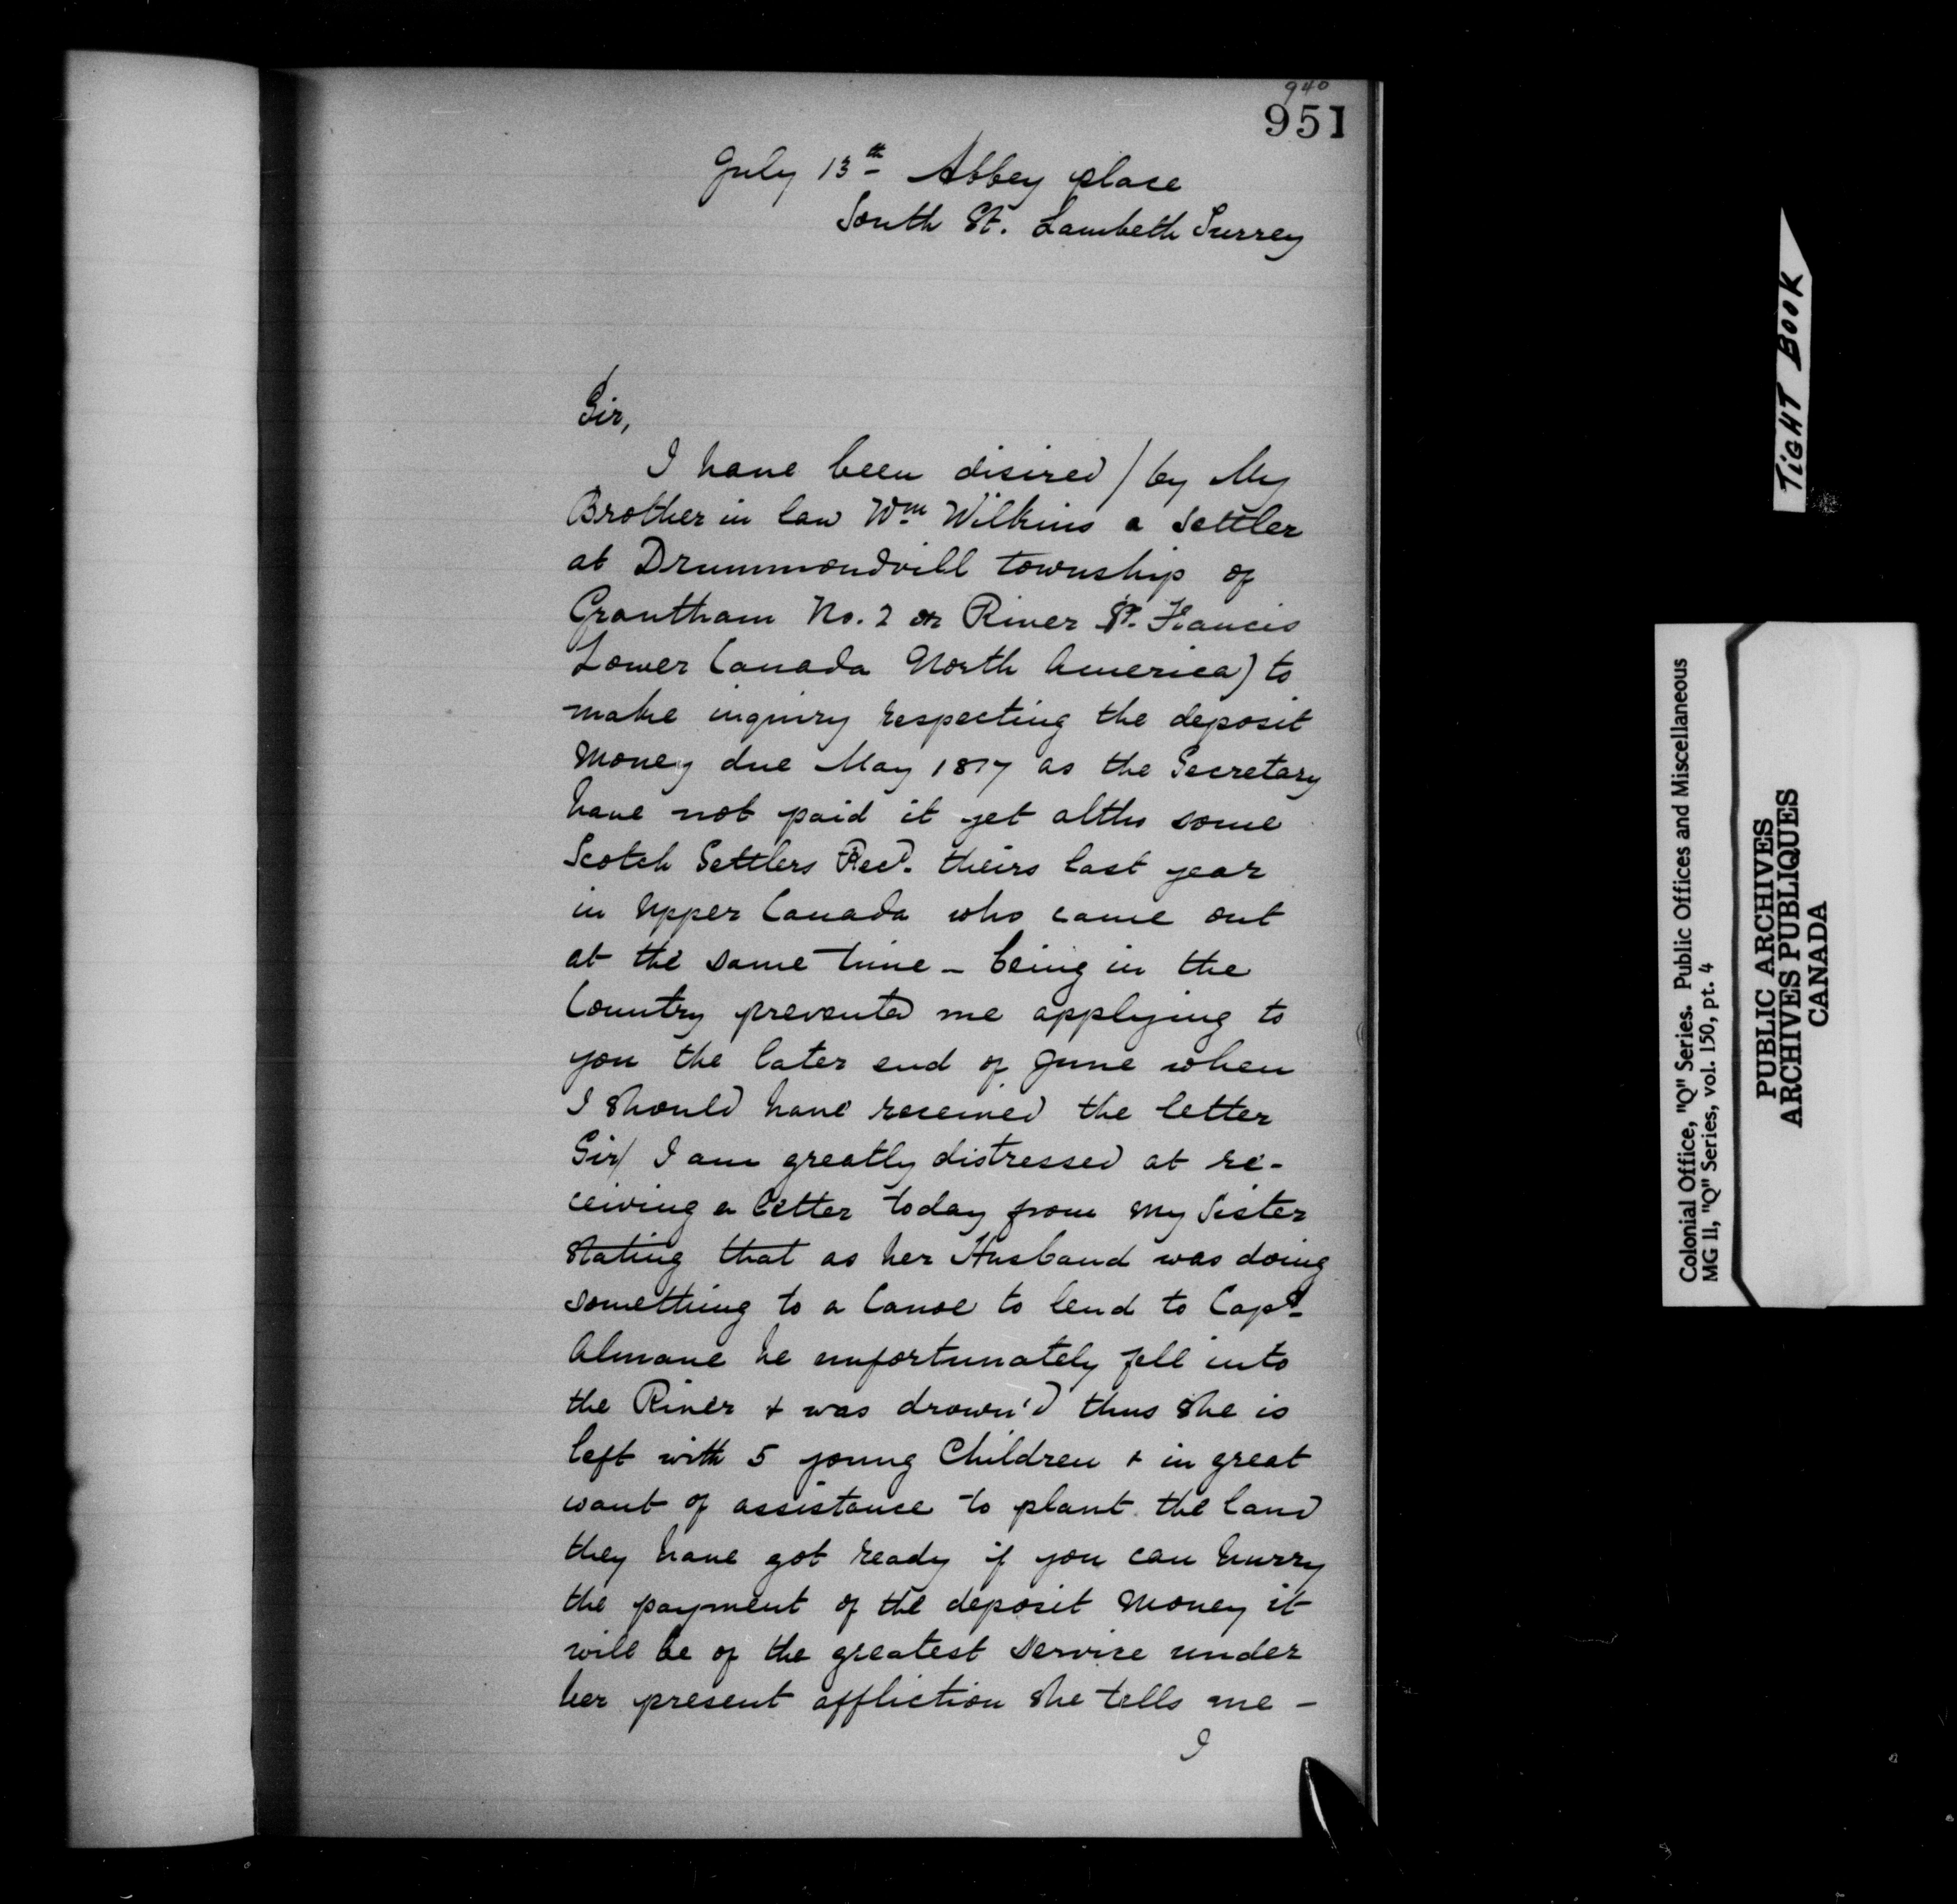 940
951
July 13th Abbey place
South St. Lambeth Surrey
Sir,
I have been disired / by My
Brother in law Wm Wilkins a Settler
at Drummondvill township of
Grantham No. 2 on River St. Francis
Lower Canada North America) to
make inquiry respecting the deposit
Money due May 1817 as the Secretary
have not paid it yet altho some
Scotch Settlers Recd. theirs last year
in Upper Canada who came out
at the same time - being in the
Country prevented me applying to
you the later end of June when
I should have received the letter
Sir/ I am greatly distressed at re-
ceiving a letter today from My Sister
stating that as her Husband was doing
something to a Canoe to lend to Capt
he unfortunately fell into
the River + was drown'd thus she is
left with 5 young Children + in great
want of assistance to plant the land
they have got ready if you can hurry
the payment of the deposit Money it
will be of the greatest service under
her present affliction she tells me -
I
TIGHT BOOK
Colonial Office, "Q" Series. Public Offices and Miscellaneous
MG 11, "Q" Series, vol. 150, pt. 4
PUBLIC ARCHIVES
ARCHIVES PUBLIQUES
CANADA